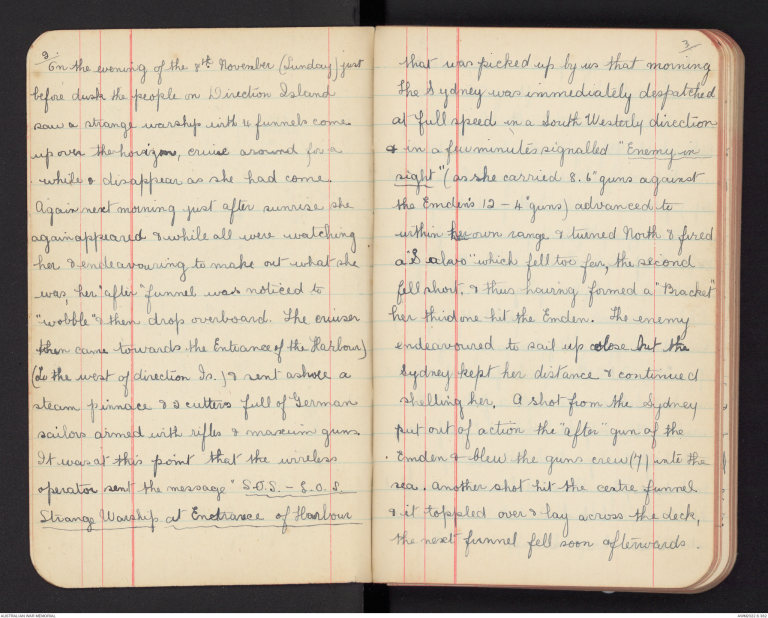 2.
On the evening of the 8th November (Sunday) just
before dusk the people on Direction Island
saw a strange warship with 4 funnels come
up over the horizon, cruise around for a
while & disappear as she had come.
Again next morning just after sunrise she
again appeared & while all were watching
her & endeavouring to make out what she
was, her "after" funnel was noticed to
"wobble" & then drop overboard. The cruiser
then came towards the Entrance of the Harbour)
(To the west of direction Is.) & sent ashore a
steam pinnace & 2 cutters full of German
sailors armed with rifles & maxim guns.
It was at this point that the wireless
operator sent the message "S.O.S. - S.O.S.
Strange Warship at Entrance of Harbour
3
that was picked up by us that morning
The Sydney was immediately despatched
at full speed in a South Westerly direction
& in a few minutes signalled "Enemy in
sight" (as she carried 8.6" guns against
the Emden's 12 - 4" guns) advanced to
within her own range & turned North & fired
a "Salvo" which fell too far, the second
fell short, & thus having formed a "Bracket"
her third one hit the Emden. The enemy
endeavoured to sail up close but the
Sydney kept her distance & continued
shelling her. A shot from the Sydney
put out of action the "after" gun of the
Emden & blew the guns crew (7) into the
sea. Another shot hit the centre funnel
& it toppled over & lay across the deck,
the next funnel fell soon afterwards.
AUSTRALIAN WAR MEMORIAL